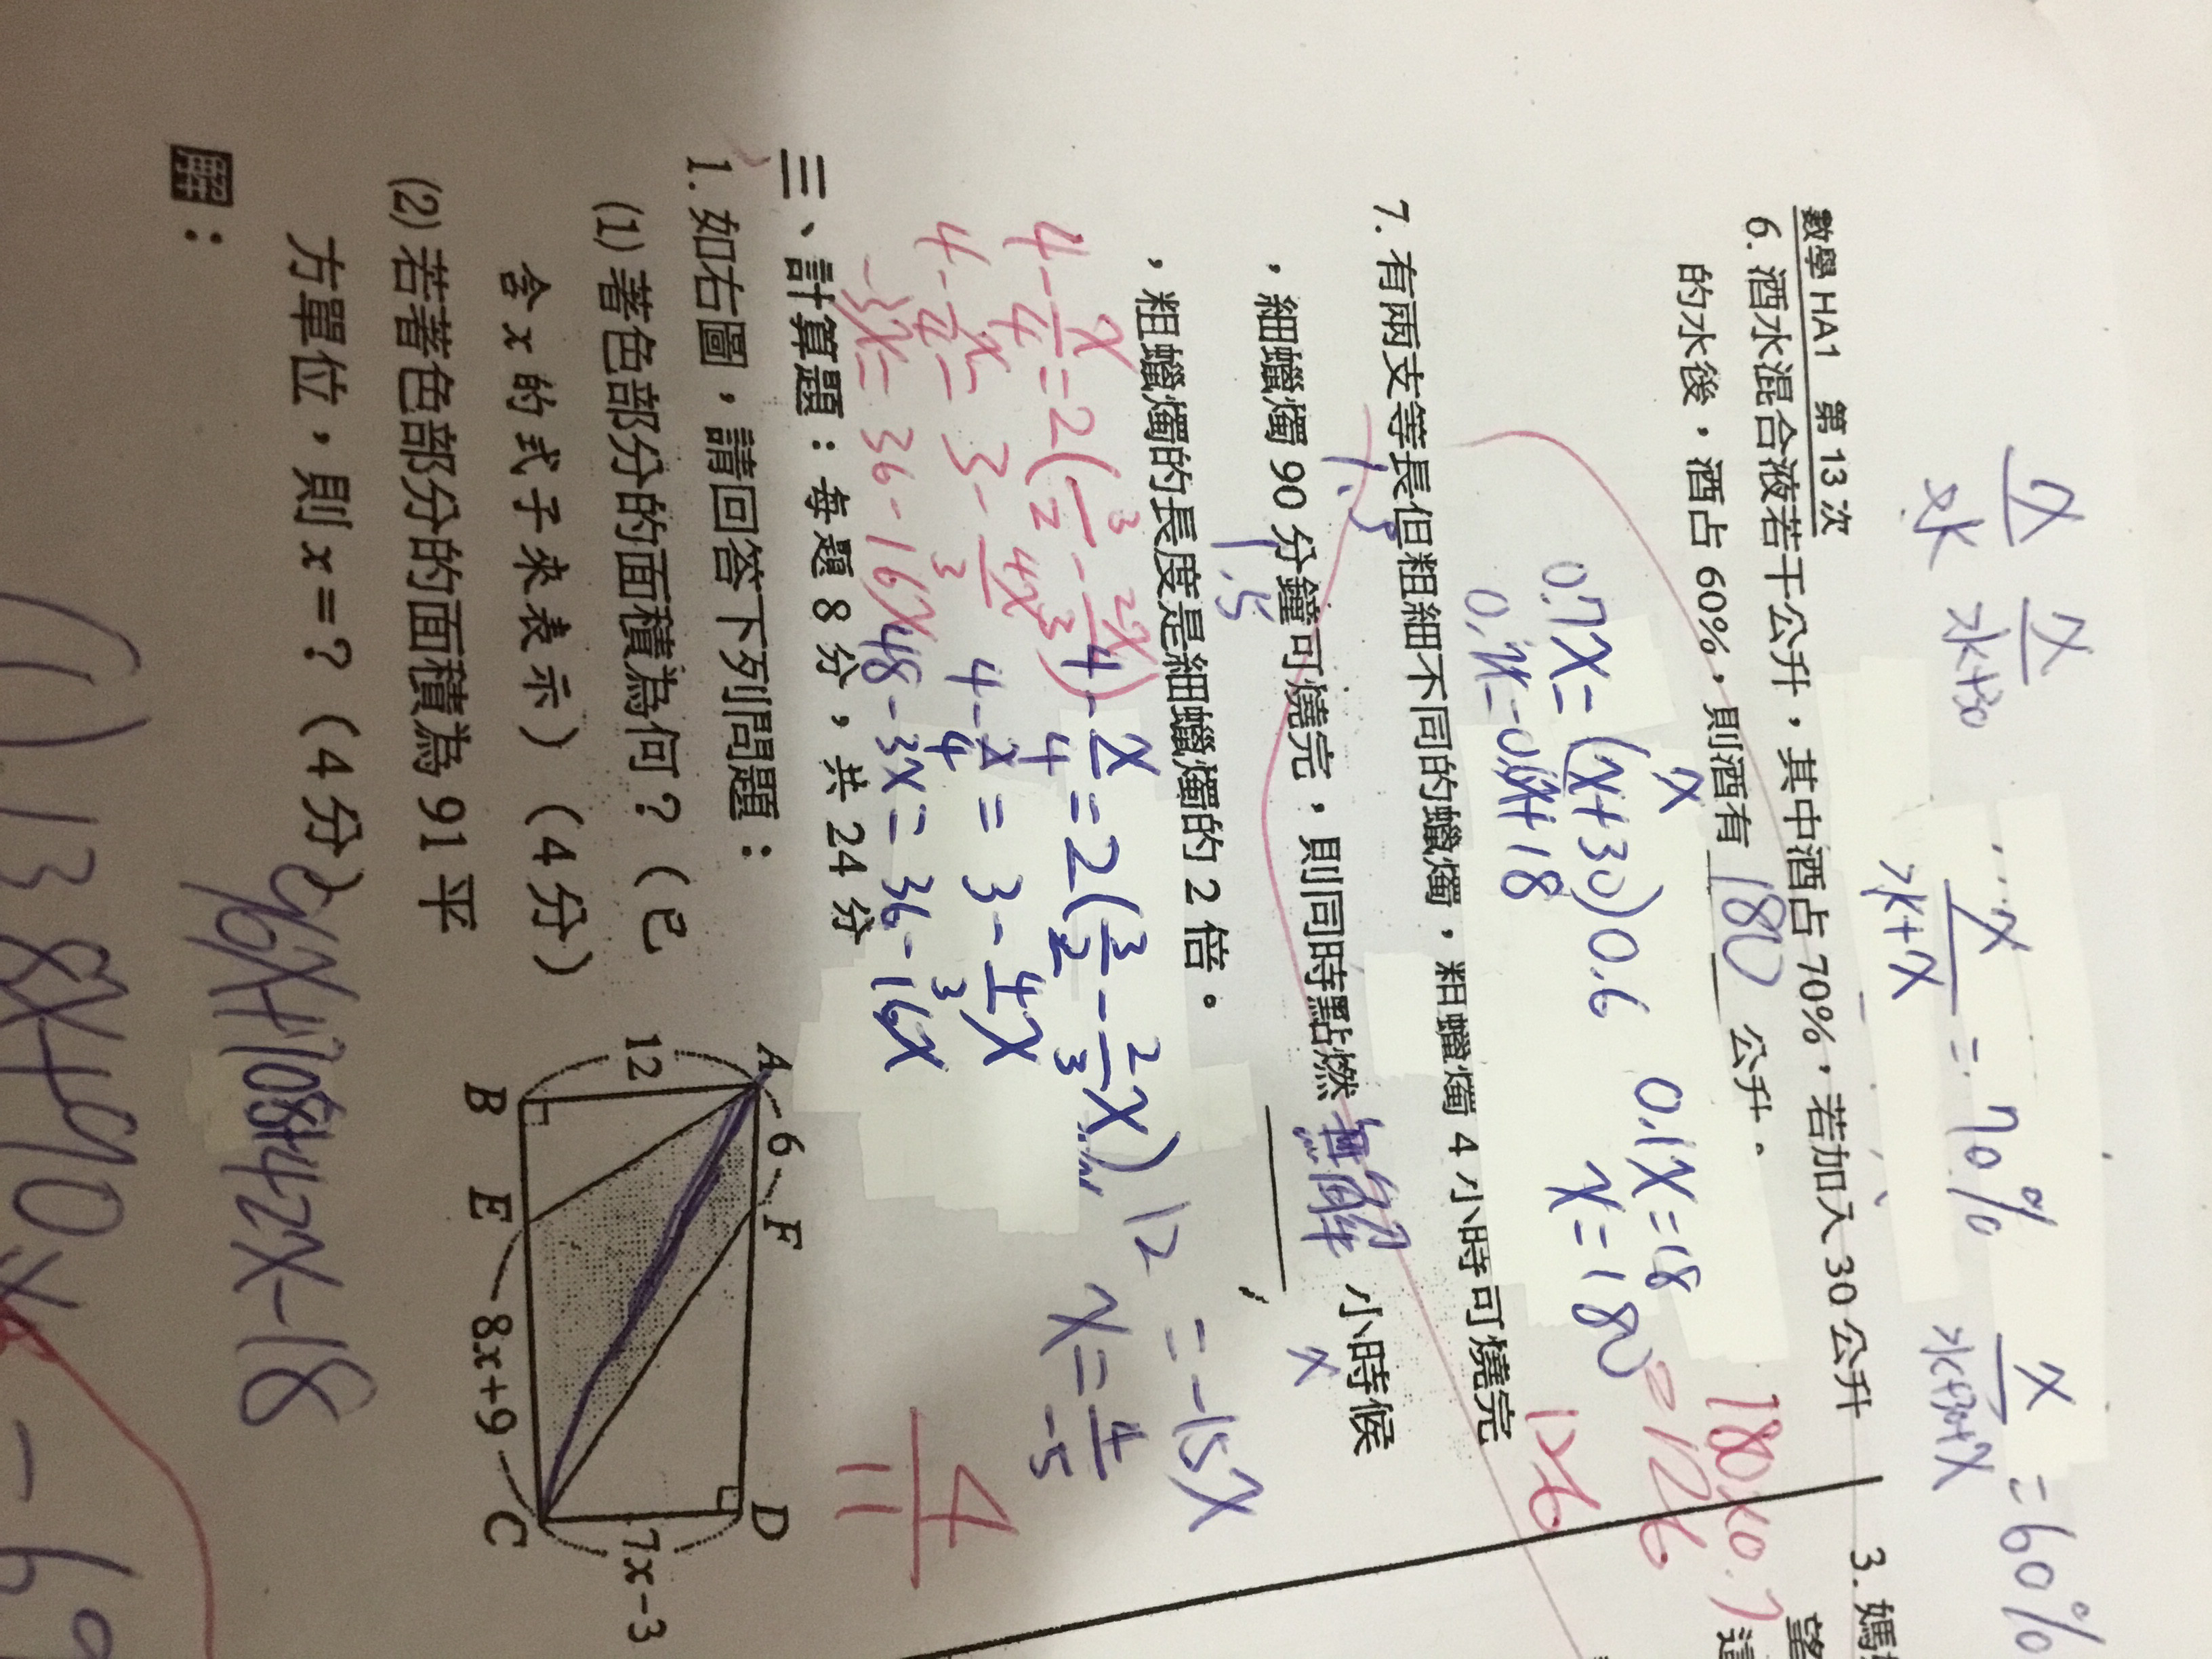 x/水 x/水+30 x/水+x = 70% x/水+30+x = 60%
數學 HA1 第 13 次
6. 酒水混合液若干公升，其中酒占 70%，若加入 30 公升
的水後，酒占 60%，則酒有 180 公升。
180×0.7
=126
126
x
0.7x=(x+30)0.6 0.1x=18
x=180
7. 有兩支等長但粗細不同的蠟燭，粗蠟燭 4 小時可燒完
1.5
，細蠟燭 90 分鐘可燒完，則同時點燃 無解 小時候
1.5
x
，粗蠟燭的長度是細蠟燭的 2 倍。
4-x/4=2(3/2-2x/3)
4-x/4=2(3/2-2/3x) 12=-15x
4-x/4=3-4x/3
4-x/4=3-4/3x x=4/-5
-3x=36-16x
48-3x=36-16x
4/11
三、計算題：每題 8 分，共 24 分
1. 如右圖，請回答下列問題：
(1) 著色部分的面積為何？（已
含 x 的式子來表示）（4 分）
(2) 若著色部分的面積為 91 平
方單位，則 x = ?（4 分）
A 6 F D
12
7x-3
B E 8x+9 C
96x+108+42x-18
(1) 138x+90
3. 媽
望